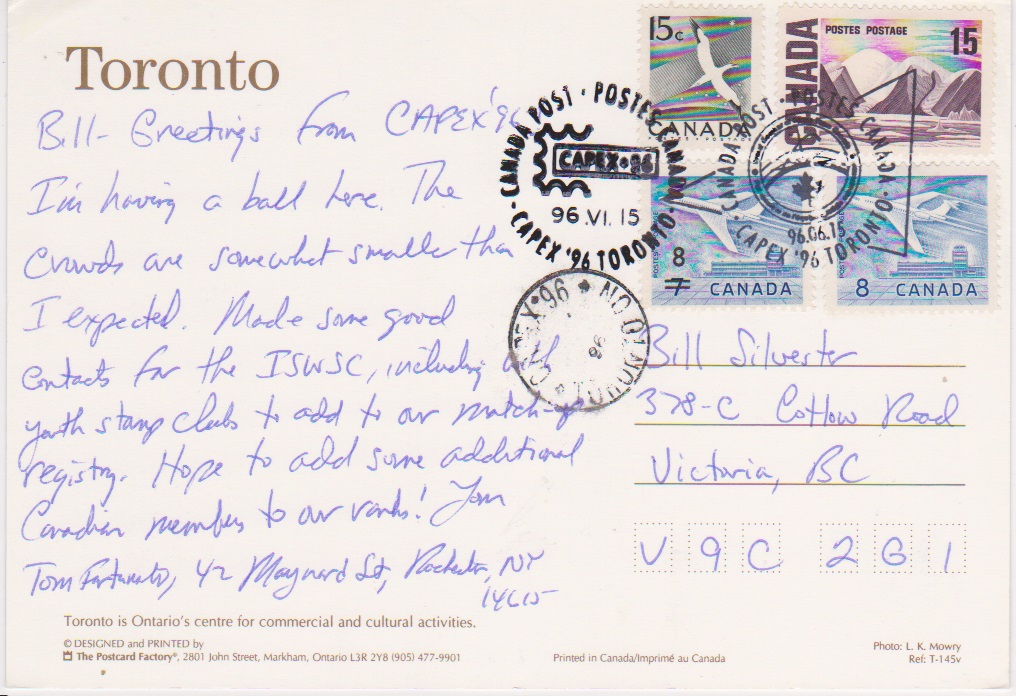 Toronto
Bill- Greetings from CAPEX'96
I'm having a ball here. The
crowds are somewhat smaller than
I expected. Made some good
contacts for the ISWSC, including
youth stamp clubs to add to our match-up
registry. Hope to add some additional
Canadian members to our ranks! Tom
Tom Fortunato, 42 Maynard St, Rochester, NY
15c
CANADA
POSTES POSTAGE
15
CANADA
CANADA POST · POSTES CANADA
CAPEX·96
96.VI.15
CAPEX '96 TORONTO
CANADA POST · POSTES CANADA
96.06.15
CAPEX '96 TORONTO
8
7 CANADA
8 CANADA
CAPEX '96 TORONTO ON
96
Bill Silvester
378-C Cotlow Road
Victoria, BC
V 9 C 2 G 1
Toronto is Ontario's centre for commercial and cultural activities.
© DESIGNED and PRINTED by
The Postcard Factory®, 2801 John Street, Markham, Ontario L3R 2Y8 (905) 477-9901
Printed in Canada/Imprimé au Canada
Photo: L. K. Mowry
Ref: T-145v